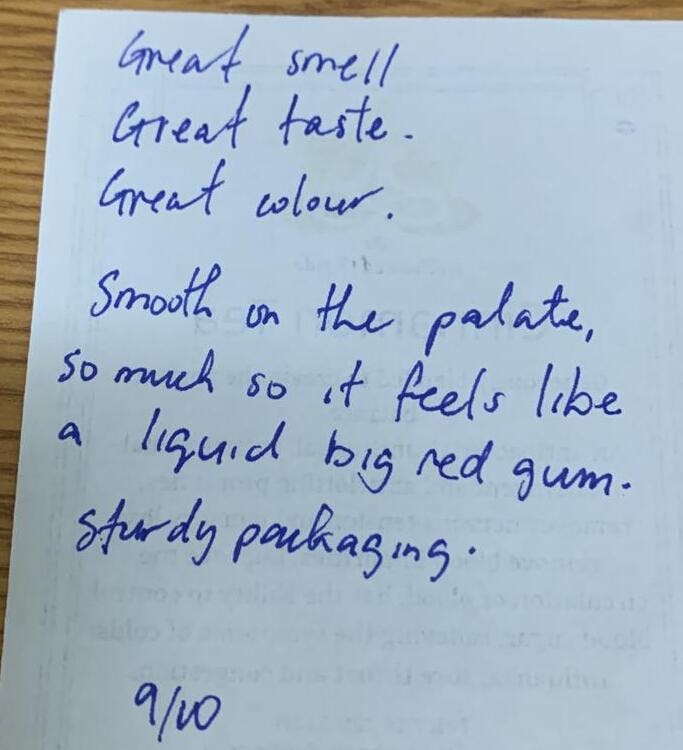 Great smell
Great taste.
Great colour.
Smooth on the palate,
so much so it feels like
a liquid big red gum.
sturdy packaging.
9/10